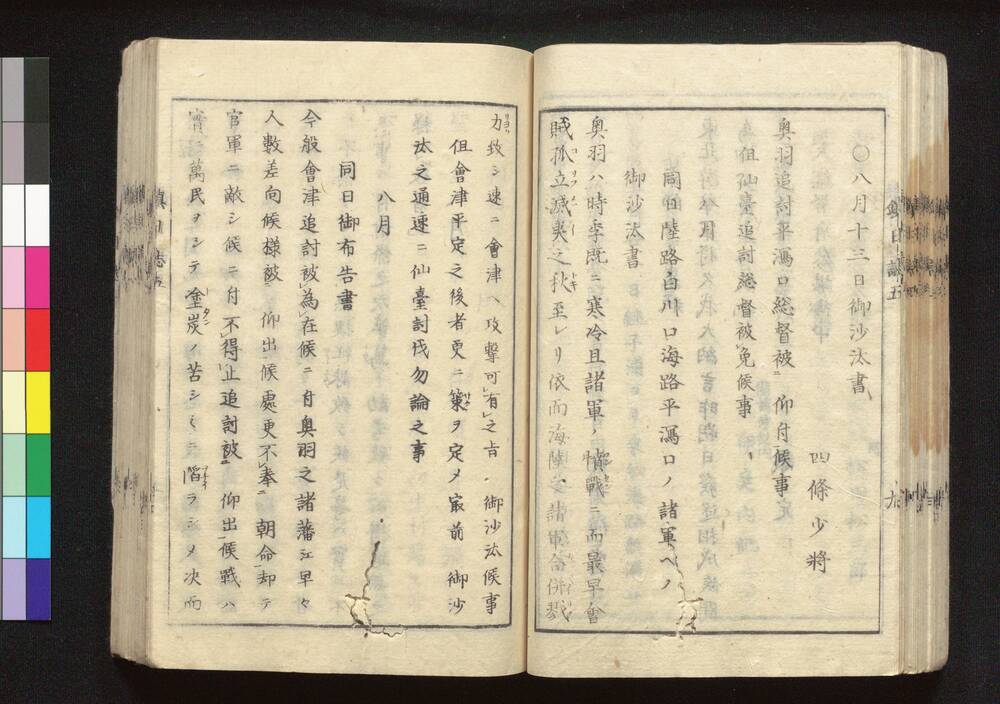 〇八月十三日御沙汰書
四條少將
奥羽追討平潟口総督被ニ仰付候事
但仙臺追討総督被レ免候事
同日陸路白川口海路平潟口ノ諸軍ヘノ
御沙汰書
奥羽ハ時季既ニ寒冷且諸軍ノ情戰ニ而最早會
賊孤立滅夷之秋至レリ依而海陸之諸軍合併戮
力致シ速ニ會津ヘ攻撃可レ有レ之旨御沙汰候事
但會津平定之後者更ニ策ヲ定メ最前御沙
汰之通速ニ仙臺討伐勿論之事
八月
同日御布告書
今般會津追討被レ為レ在候ニ付奥羽之諸藩江早々
人數差向候様被ニ仰出候處更不レ奉ニ朝命却テ
官軍ニ敵シ候ニ付不レ得レ止追討被ニ仰出候戰ハ
實ニ萬民ヲシテ塗炭ノ苦シミニ陥ラシメ决而